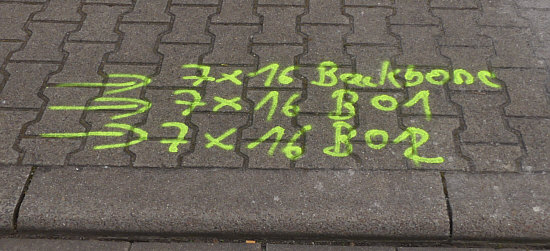 7x16 Backbone
7x16 B01
7x16 B02